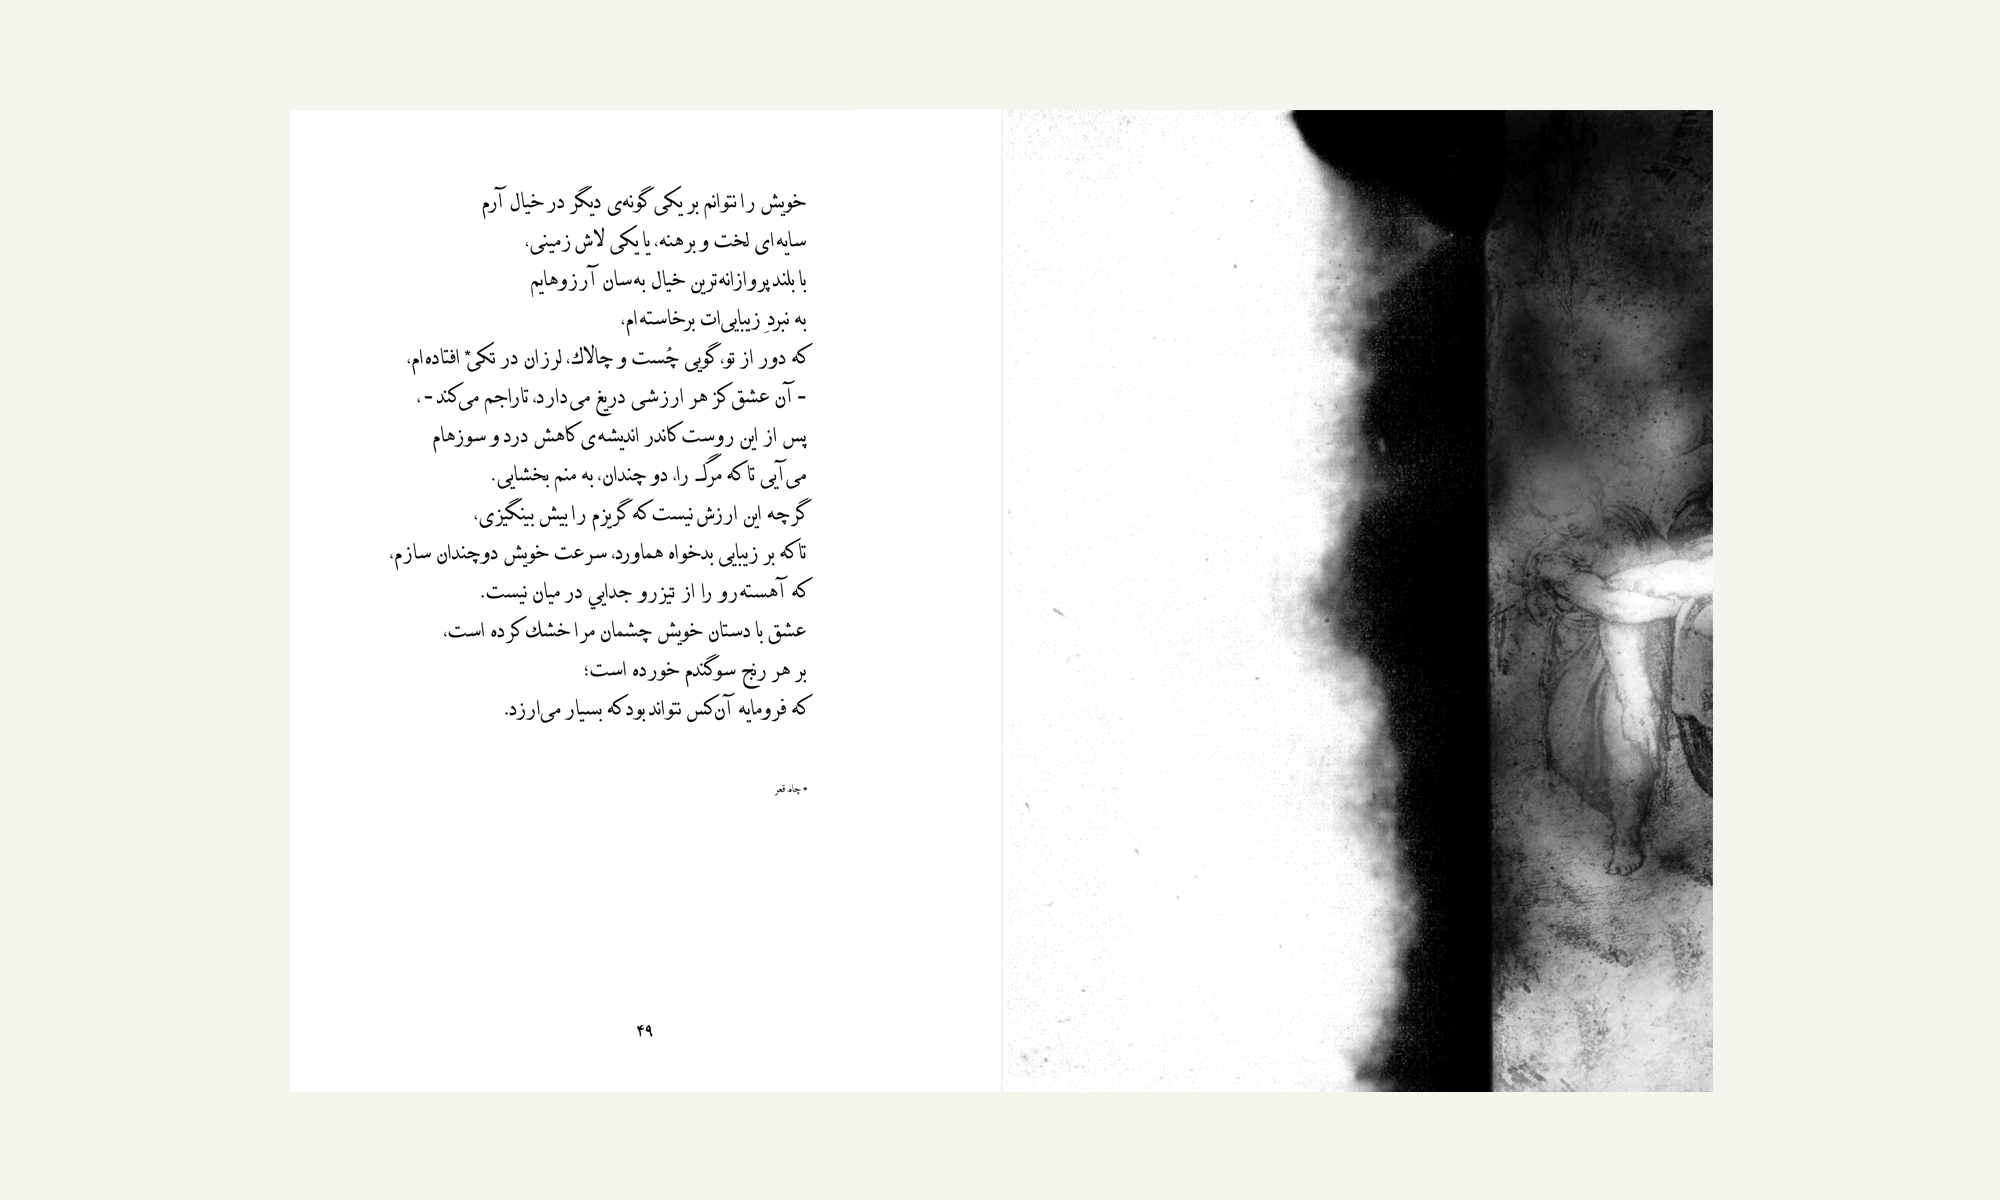 خویش را نتوانم بر یکی گونه‌ی دیگر در خیال آرم
سایه‌ای لخت و برهنه، یا یکی لاش زمینی،
با بلندپروازانه‌ترین خیال به‌سان آرزوهایم
به نبردِ زیبایی‌ات برخاسته‌ام،
که دور از تو، گویی چُست و چالاك، لرزان در تکی* افتاده‌ام،
- آن عشق کز هر ارزشی دریغ می‌دارد، تاراجم می‌کند - ،
پس از این روست کاندر اندیشه‌ی کاهش درد و سوزهام
می‌آیی تا که مرگ را، دو چندان، به منم بخشایی.
گرچه این ارزش نیست که گریزم را بیش بینگیزی،
تا که بر زیبایی بدخواه هماورد، سرعت خویش دوچندان سازم،
که آهسته‌رو را از تیزرو جدایي در میان نیست.
عشق با دستان خویش چشمان مرا خشك کرده است،
بر هر رنج سوگندم خورده است؛
که فرومایه آن‌کس نتواند بود که بسیار می‌ارزد.
* چاه، قعر
۴۹